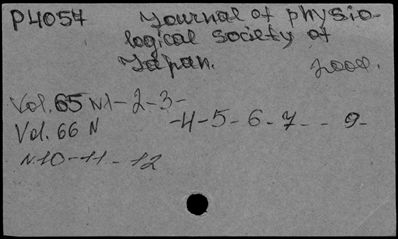 P4054 Journal of physio-
logical society of
Japan. 2004.
Vol. 65 N1-2-3-
-4-5-6-7--9-
Vol. 66 N
N10-11-12